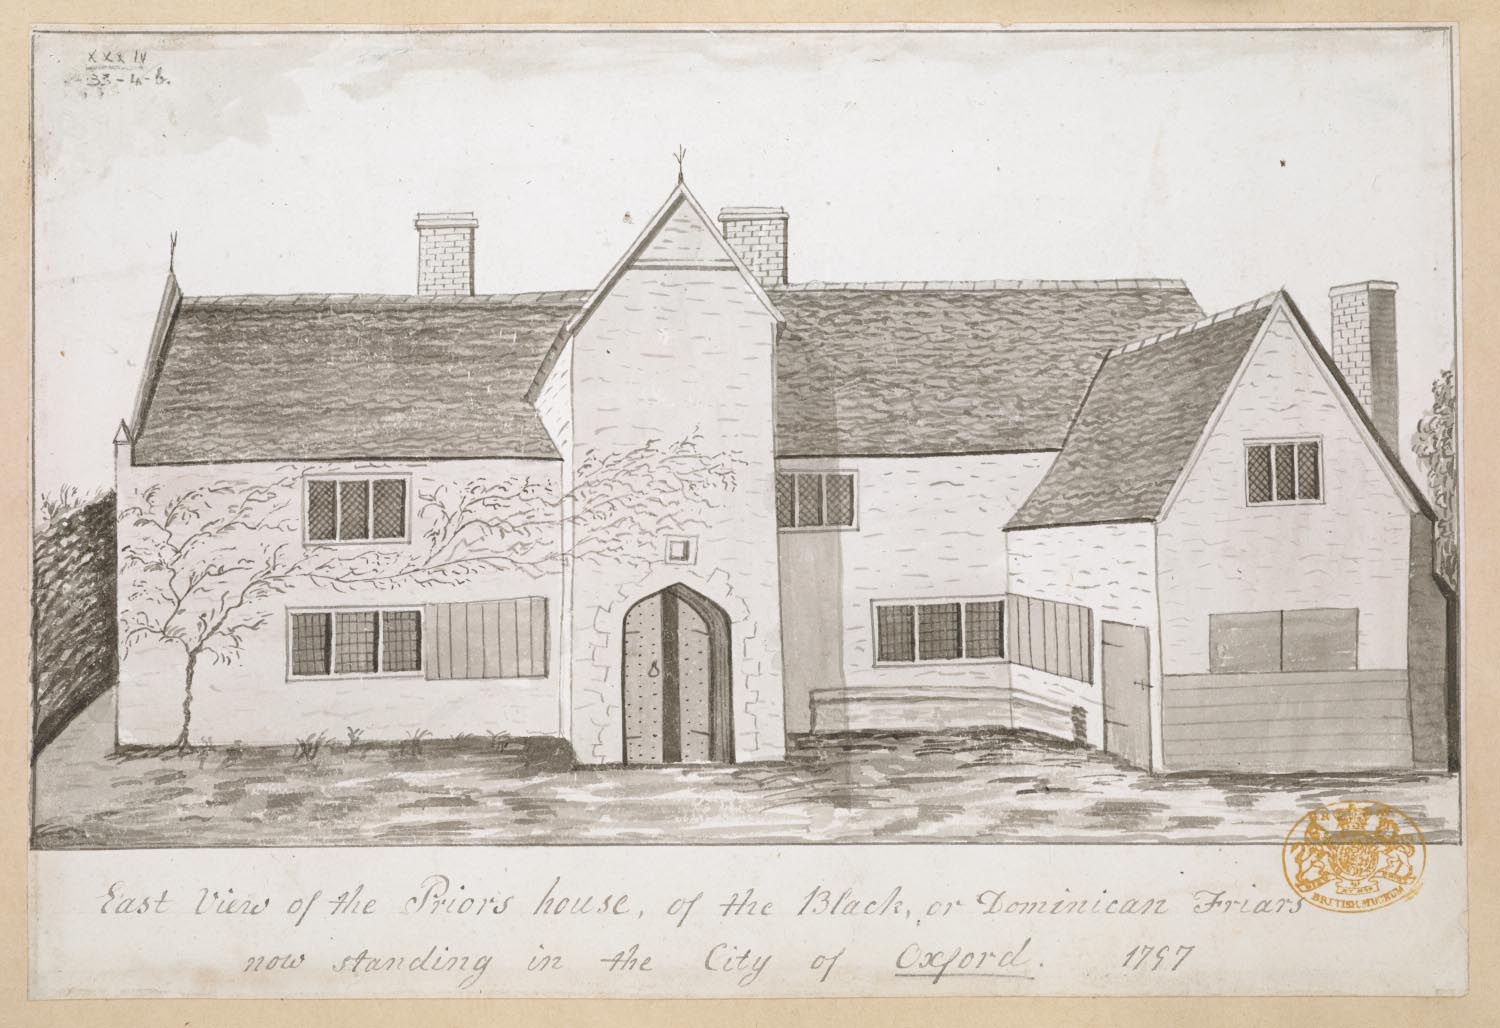 XXXIV
33-4-b.
East View of the Priors house, of the Black, or Dominican Friars
now standing in the City of Oxford. 1797
BRITISH MUSEUM